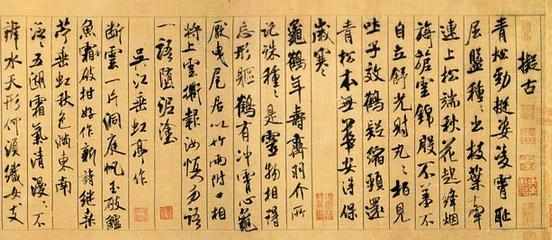 擬古
青松勁挺姿凌霄恥
屈盤種々出枝葉牽
連上松端秋花起絳烟
旖旎雲錦殷不羞不
自立舒光射丸々柏見
吐子效鶴疑縮頸還
青松本無華安得保
歲寒
龜鶴年壽齊羽介所
託殊種々是靈物相得
忘形軀鶴有沖霄心龜
厭曳尾居以竹兩附口相
將上雲衢報汝慎勿語
一語墮泥塗
吳江垂虹亭作
斷雲一片洞庭帆玉破鱸
魚霜破柑好作新詩繼桑
苧垂虹秋色滿東南
泛々五湖霜氣清漫々不
辨水天形何須織女支